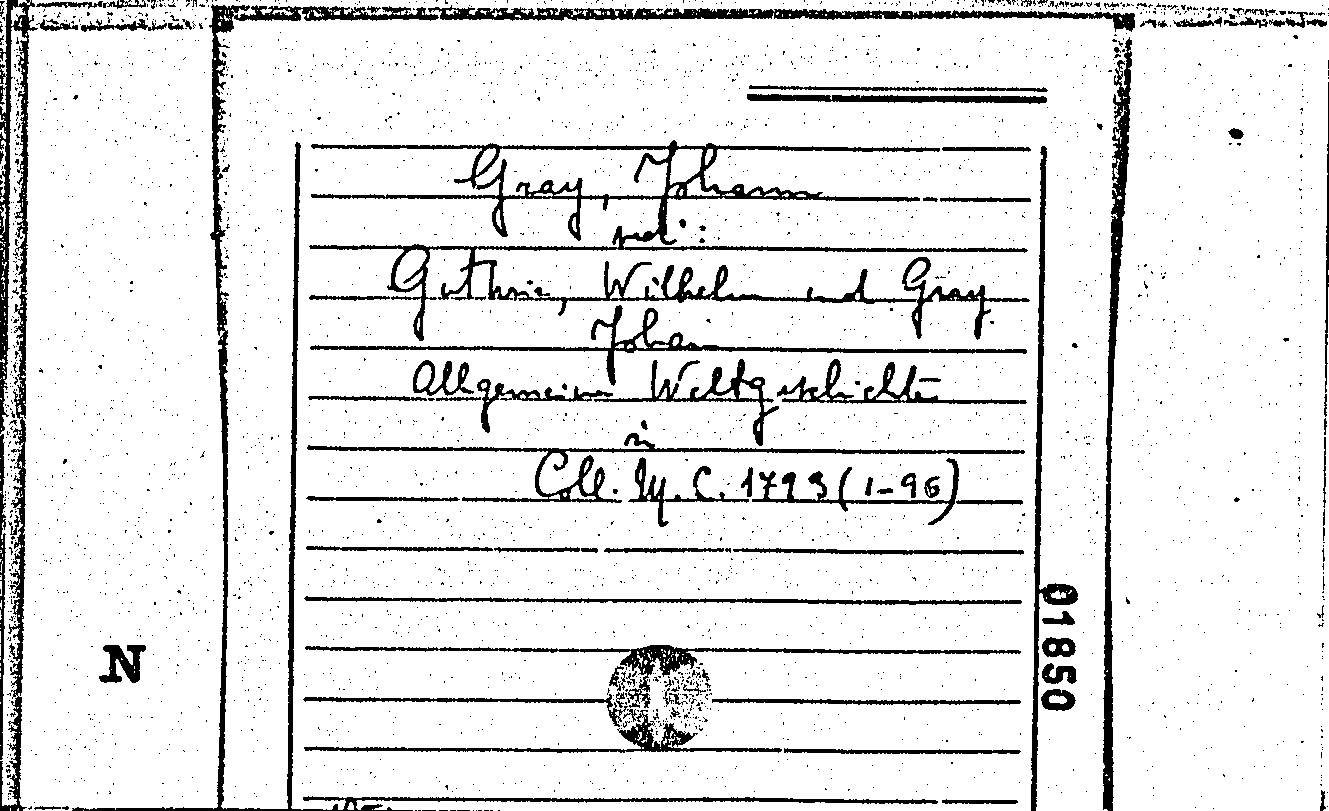 Gray, Johann
vedi:
Guthrie, Wilhelm und Gray
Johann
Allgemeine Weltgeschichte
in
Coll. M. C. 1793 (1-96)
01850
N